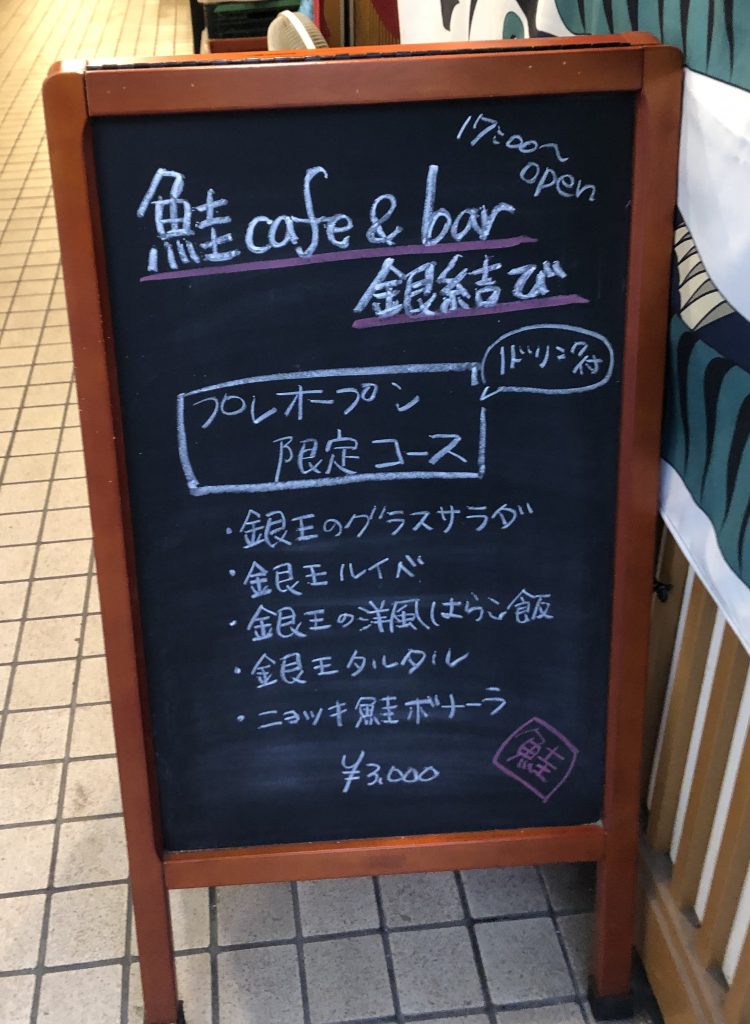 17:00〜
open
鮭 cafe & bar
銀結び
1ドリンク付
プレオープン
限定コース
・銀王のグラスサラダ
・銀王ルイベ
・銀王の洋風はらこ飯
・銀王タルタル
・ニョッキ鮭ボナーラ
¥3.000
鮭